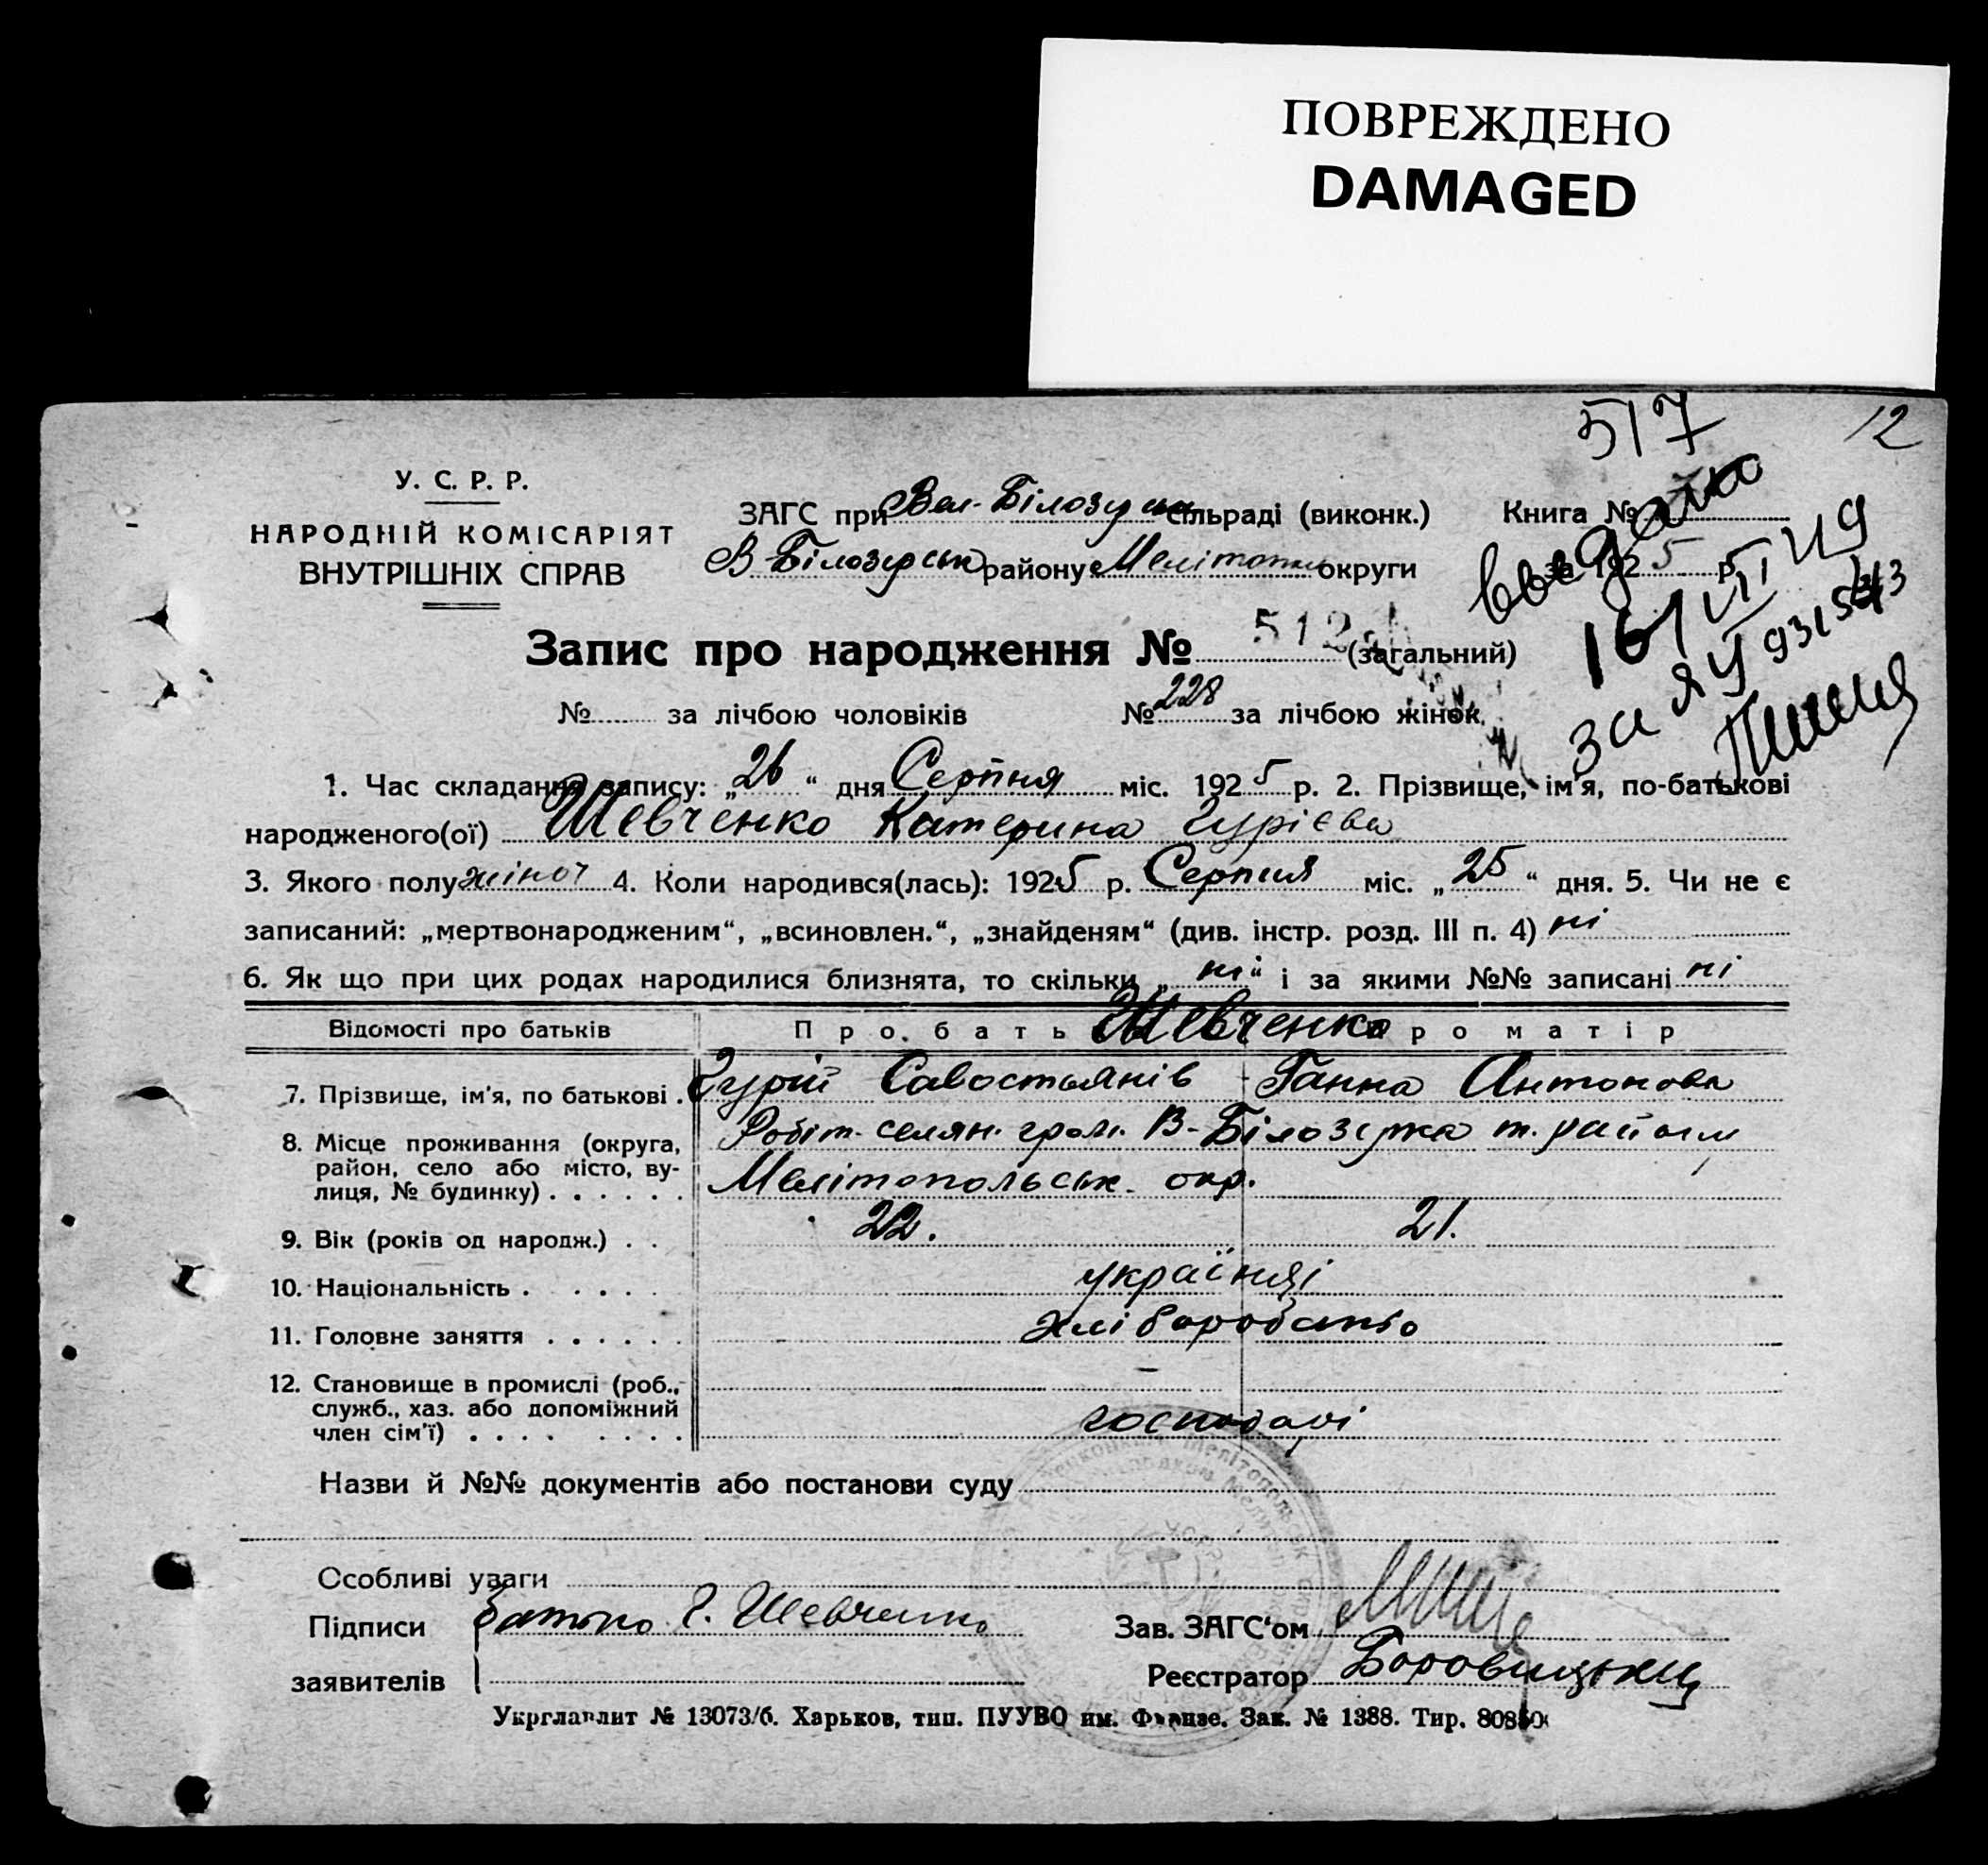 ПОВРЕЖДЕНО
DAMAGED
517
12
У. С. Р. Р.
НАРОДНІЙ КОМІСАРІЯТ
ВНУТРІШНІХ СПРАВ
ЗАГС при Вел-Білозерськ сільраді (виконк.) Книга №
В-Білозерськ району Мелітопол округи за 1925 р.
видано
Запис про народження № 512 (загальний)
№ за лічбою чоловіків № 228 за лічбою жінок
1. Час складання запису: „26“ дня Серпня міс. 1925 р. 2. Прізвище, ім'я, по-батькові
народженого(ої) Шевченко Катерина Гурієва
3. Якого полу жіноч 4. Коли народився(лась): 1925 р. Серпня міс. „25“ дня. 5. Чи не є
записаний: „мертвонародженим“, „всиновлен.“, „знайденям“ (див. інстр. розд. III п. 4) ні
6. Як що при цих родах народилися близнята, то скільки „ні“ і за якими №№ записані ні
Відомості про батьків Про бать Шевченко про матір
7. Прізвище, ім'я, по батькові . Гурій Савостьянів Ганна Антонова
8. Місце проживання (округа, район, село або місто, вулиця, № будинку) . . . . . . Робіт. селян. гром. В-Білозерка т. району
Мелітопольськ. окр.
9. Вік (років од народж.) . . 22. 21.
10. Національність . . . . . українці
11. Головне заняття . . . . . . хліборобство
12. Становище в промислі (роб., служб., хаз. або допоміжний член сім'ї) . . . . . . . . –
господарі
Назви й №№ документів або постанови суду
Особливі уваги
Підписи Батько Г. Шевченко Зав. ЗАГС'ом
заявителів Реєстратор Боровицький
Укрглавлит № 13073/б. Харьков, тип. ПУУВО им. Фрунзе. Зак. № 1388. Тир.